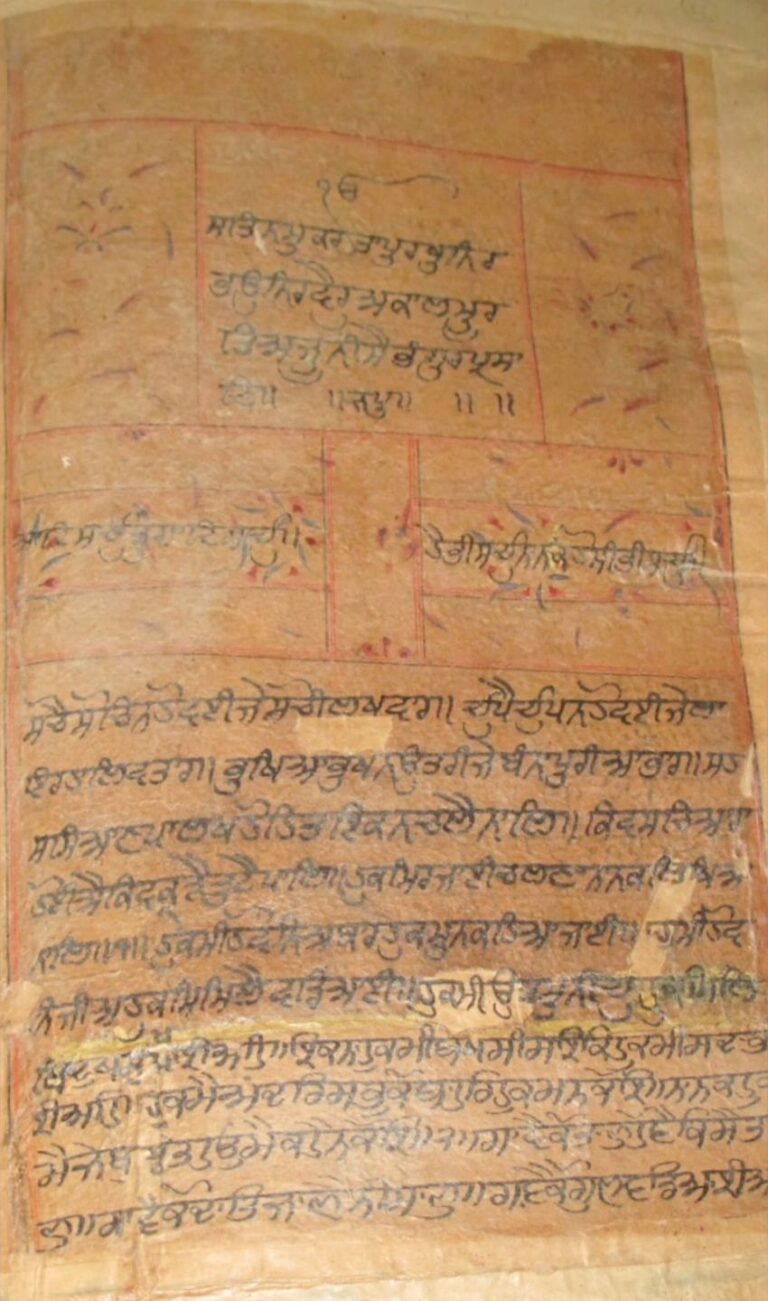 ੴ
ਸਤਿਨਾਮੁਕਰਤਾਪੁਰਖੁਨਿਰ
ਭਉਨਿਰਵੈਰੁਅਕਾਲਮੂਰ
ਤਿਅਜੂਨੀਸੈਭੰਗੁਰਪ੍ਰਸਾ
ਦਿ॥ ॥ਜਪੁ॥ ॥ ॥
ਆਦਿਸਚੁਜੁਗਾਦਿਸਚੁ॥
ਹੈਭੀਸਚੁਨਾਨਕਹੋਸੀਭੀਸਚੁ
ਸੋਚੈਸੋਚਿਨਹੋਵਈਜੇਸੋਚੀਲਖਵਾਰ॥ ਚੁਪੈਚੁਪਨਹੋਵਈਜੇਲਾ
ਇਰਹਾਲਿਵਤਾਰ॥ ਭੁਖਿਆਭੁਖਨਉਤਰੀਜੇਬੰਨਾਪੁਰੀਆਭਾਰ॥ਸਹ
ਸਸਿਆਣਪਾਲਖਹੋਹਿਤਾਇਕਨਚਲੈਨਾਲਿ॥ ਕਿਵਸਚਿਆਰਾ
ਹੋਈਐਕਿਵਕੂੜੈਤੁਟੈਪਾਲਿ॥ਹੁਕਮਿਰਜਾਈਚਲਣਾਨਾਨਕਲਿਖਿਆ
ਨਾਲਿ॥੧॥ ਹੁਕਮੀਹੋਵਨਿਆਕਾਰਹੁਕਮੁਨਕਹਿਆਜਾਈ॥ ਹੁਕਮੀਹੋਵ
ਨਿਜੀਅਹੁਕਮਿਮਿਲੈਵਡਿਆਈ॥ਹੁਕਮੀਉਤਮੁਨੀਚੁਹੁਕਮਿਲਿ
ਖਿਦੁਖਸੁਖਪਾਈਅਹਿ॥ਇਕਨਾਹੁਕਮੀਬਖਸੀਸਇਕਿਹੁਕਮੀਸਦਾਭ
ਵਾਈਅਹਿ॥ਹੁਕਮੈਅੰਦਰਿਸਭੁਕੋਬਾਹਰਿਹੁਕਮਨਕੋਇ॥ਨਾਨਕਹੁਕ
ਮੈਜੇਬੁਝੈਤਹਉਮੈਕਹੈਨਕੋਇ॥੨॥ਗਾਵੈਕੋਤਾਣੁਹੋਵੈਕਿਸੈਤਾ
ਣੁ॥ਗਾਵੈਕੋਦਾਤਿਜਾਣੈਨੀਸਾਣੁ॥ਗਾਵੈਕੋਗੁਣਵਡਿਆਈਆ